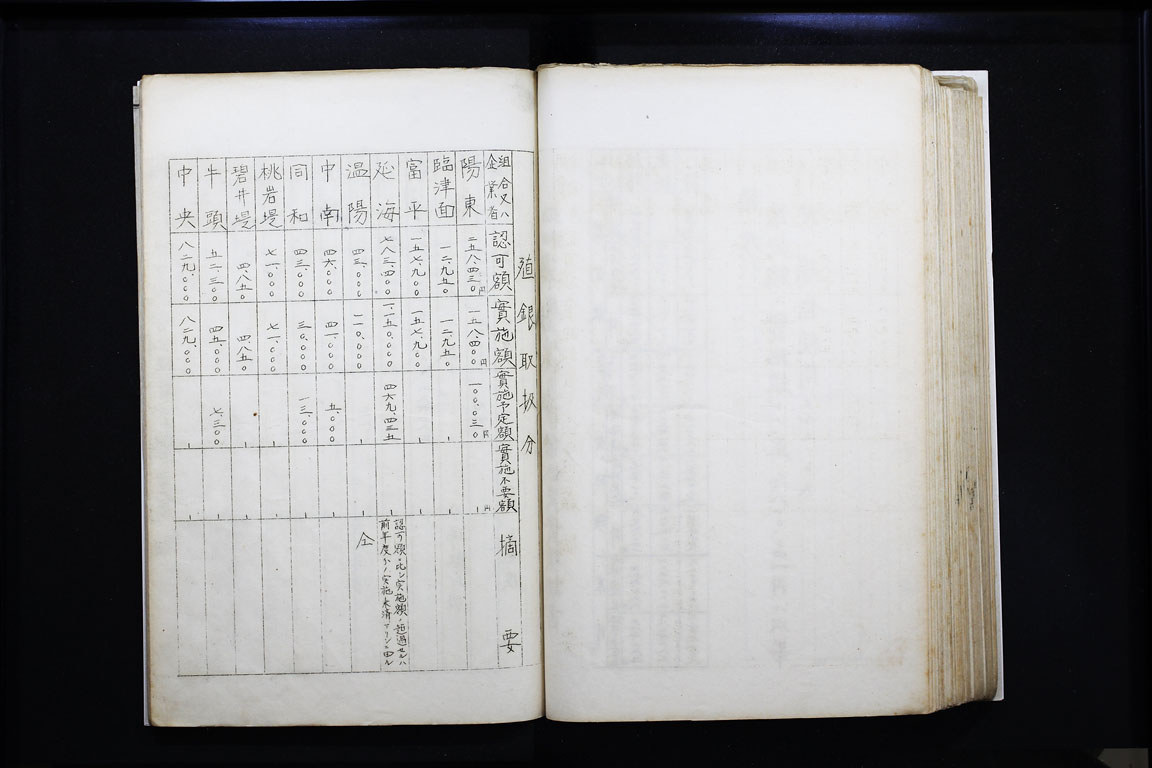 殖銀取扱分
組合又ハ企業者 認可額 實施額 實施予定額 實施不要額 摘要
陽東 二五八.四三〇円 一五八.四〇〇円 一〇〇.〇三〇円 -円
臨津面 一二.九五〇 一二.九五〇 - -
富平 一五七.九〇〇 一五七.九〇〇 - -
延海 七八三.四〇〇 一.一五〇.〇〇〇 四六九.四三五 - 認可額ニ比シ実施額ノ超過セルハ前年度分ノ実施未済アリシニ由ル
温陽 四三.〇〇〇 一一〇.〇〇〇 - - 仝
中南 四六.〇〇〇 四一.〇〇〇 五.〇〇〇 -
同和 四三.〇〇〇 三〇.〇〇〇 一三.〇〇〇 -
桃岩堤 七一.〇〇〇 七一.〇〇〇 - -
碧井堤 四.八五〇 四.八五〇 - -
牛頭 五二.三〇〇 四五.〇〇〇 七.三〇〇 -
中央 八二九.〇〇〇 八二九.〇〇〇 - -